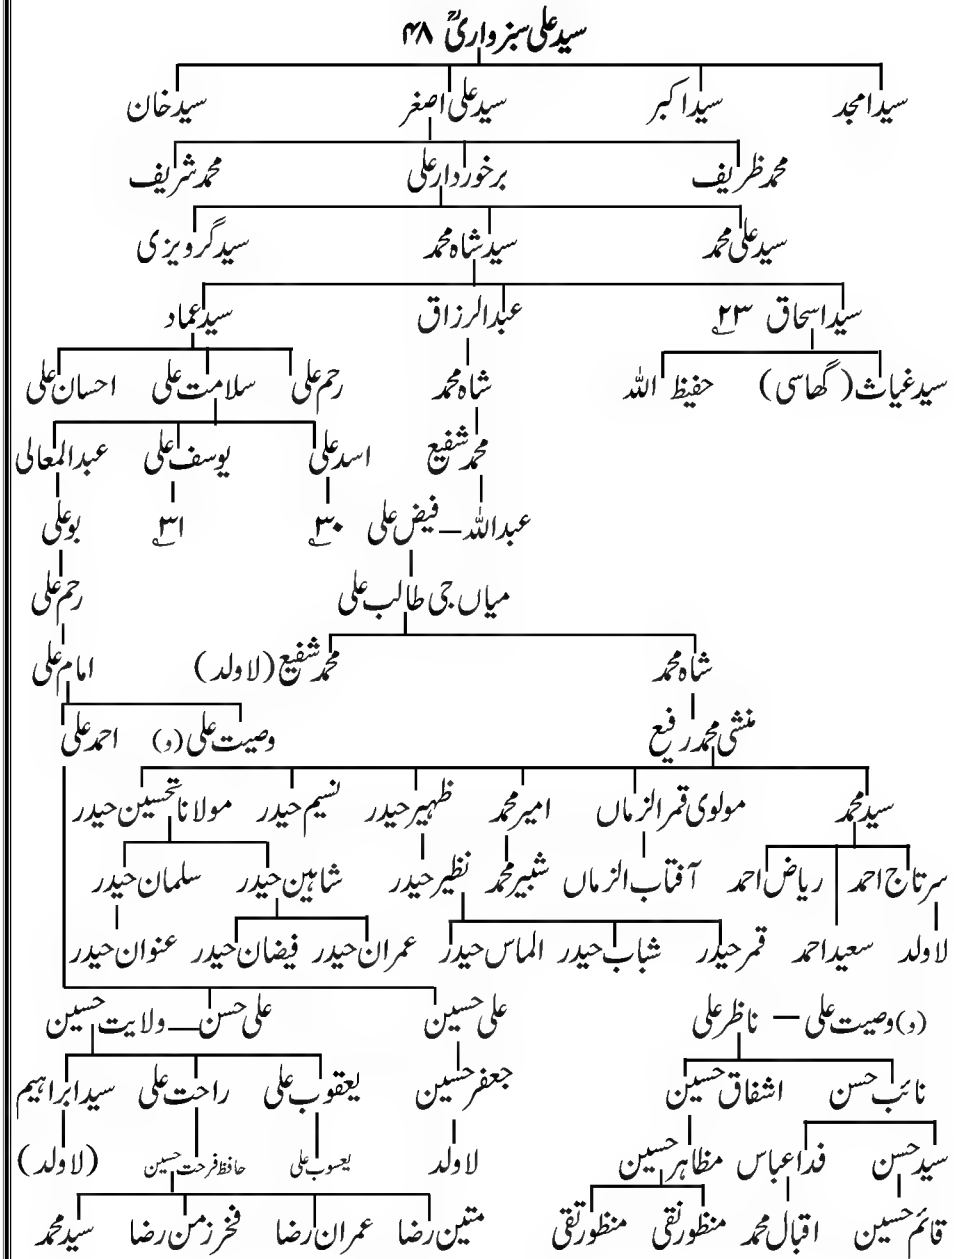 سید علی سبزواریؒ ۴۸
سید امجد سید اکبر سید علی اصغر سید خان
محمد ظریف برخوردار علی محمد شریف
سید علی محمد سید شاہ محمد سید گردیزی
سید اسحاق ۲۳ عبدالرزاق سید عماد
سید غیاث (گھاسی) حفیظ اللہ شاہ محمد رحم علی سلامت علی احسان علی
محمد شفیع اسد علی یوسف علی عبدالمعالی
عبداللہ — فیض علی ۳۰ ۳۱ بو علی
میاں جی طالب علی رحم علی
شاہ محمد محمد شفیع (لاولد) امام علی
منشی محمد رفیع وصیت علی (و) احمد علی
سید محمد مولوی قمر الزماں امیر محمد ظہیر حیدر نسیم حیدر مولانا تحسین حیدر
سرتاج احمد ریاض احمد آفتاب الزماں شبیر محمد نظیر حیدر شاہین حیدر سلمان حیدر
لاولد سعید احمد قمر حیدر شباب حیدر الماس حیدر عمران حیدر فیضان حیدر عنوان حیدر
(و) وصیت علی — ناظر علی علی حسین علی حسن — ولایت حسین
نائب حسن اشفاق حسین جعفر حسین یعقوب علی راحت علی سید ابراہیم
سید حسن فدا عباس مظاہر حسین لاولد یعسوب علی حافظ فرحت حسین (لاولد)
قائم حسین اقبال محمد منظور نقی منظور تقی متین رضا عمران رضا فخر زمن رضا سید محمد